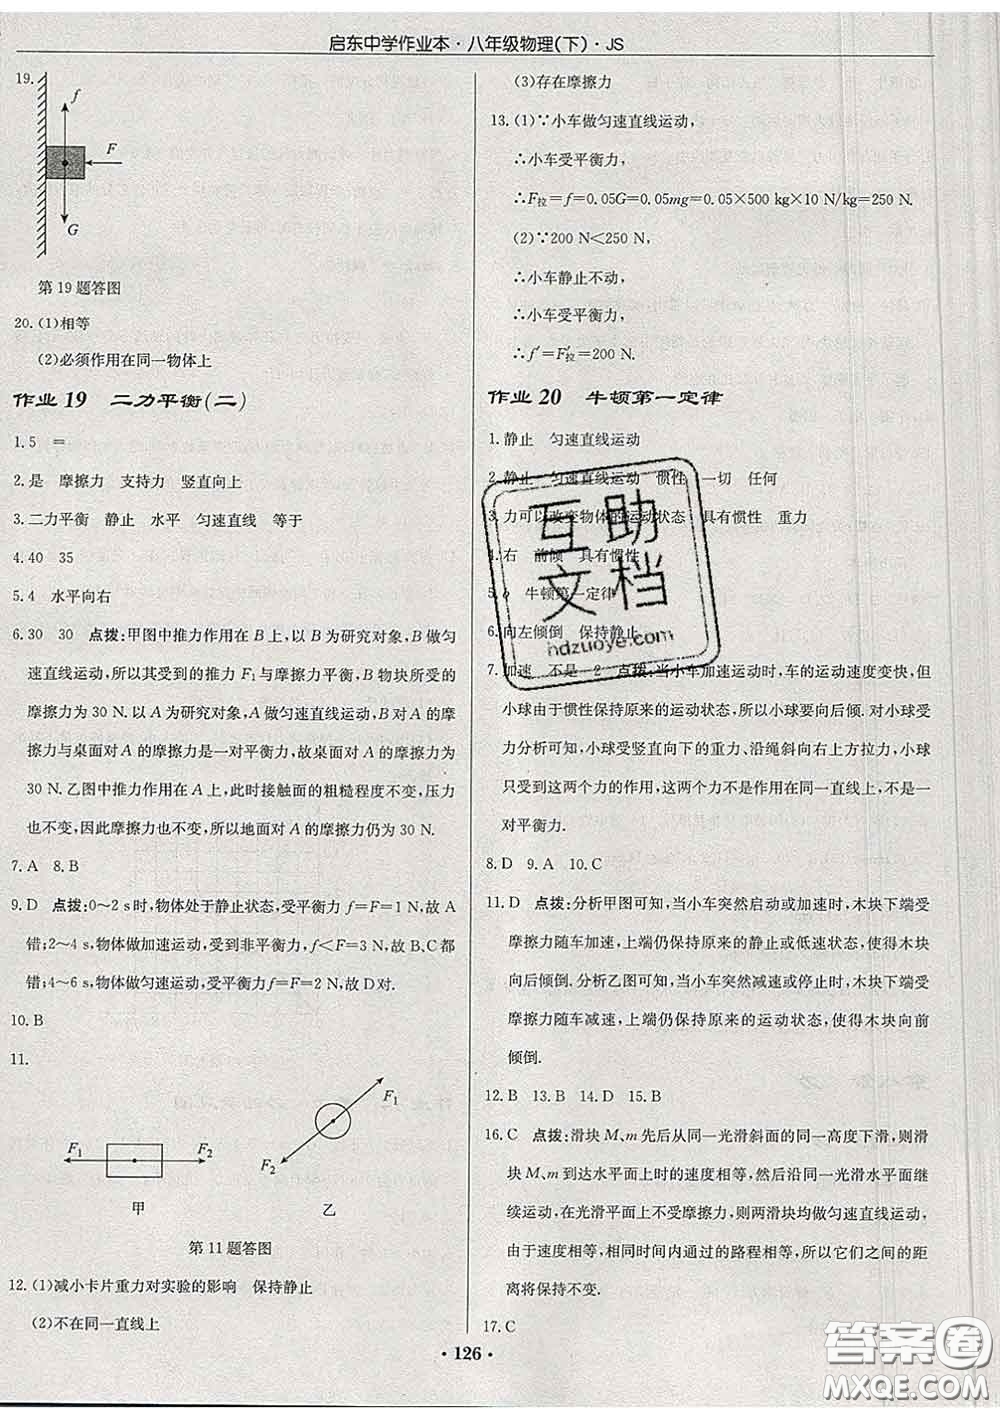 启东中学作业本·八年级物理(下)·JS
19.
f
F
G
第19题答图
20.(1)相等
(2)必须作用在同一物体上
作业19 二力平衡(二)
1.5 =
2.是 摩擦力 支持力 竖直向上
3.二力平衡 静止 水平 匀速直线 等于
4.40 35
5.4 水平向右
6.30 30 点拨:甲图中推力作用在B上,以B为研究对象,B做匀
速直线运动,所以其受到的推力F₁与摩擦力平衡,B物块所受的
摩擦力为30 N.以A为研究对象,A做匀速直线运动,B对A的摩
擦力与桌面对A的摩擦力是一对平衡力,故桌面对A的摩擦力为
30 N.乙图中推力作用在A上,此时接触面的粗糙程度不变,压力
也不变,因此摩擦力也不变,所以地面对A的摩擦力仍为30 N.
7.A 8.B
9.D 点拨:0～2 s时,物体处于静止状态,受平衡力f=F=1 N,故A
错;2～4 s,物体做加速运动,受到非平衡力,f<F=3 N,故B、C都
错;4～6 s,物体做匀速运动,受平衡力f=F=2 N,故D对.
10.B
11.
F₁ F₂
甲
F₁
F₂
乙
第11题答图
12.(1)减小卡片重力对实验的影响 保持静止
(2)不在同一直线上
(3)存在摩擦力
13.(1)∵小车做匀速直线运动,
∴小车受平衡力,
∴F拉=f=0.05G=0.05mg=0.05×500 kg×10 N/kg=250 N.
(2)∵200 N<250 N,
∴小车静止不动,
∴小车受平衡力,
∴f′=F′拉=200 N.
作业20 牛顿第一定律
1.静止 匀速直线运动
2.静止 匀速直线运动 惯性 一切 任何
3.力可以改变物体的运动状态 具有惯性 重力
4.右 前倾 具有惯性
5. 牛顿第一定律
6.向左倾倒 保持静止
7.加速 不是 2 点拨:当小车加速运动时,车的运动速度变快,但
小球由于惯性保持原来的运动状态,所以小球要向后倾.对小球受
力分析可知,小球受竖直向下的重力、沿绳斜向右上方拉力,小球
只受到这两个力的作用,这两个力不是作用在同一直线上,不是一
对平衡力.
8.D 9.A 10.C
11.D 点拨:分析甲图可知,当小车突然启动或加速时,木块下端受
摩擦力随车加速,上端仍保持原来的静止或低速状态,使得木块
向后倾倒.分析乙图可知,当小车突然减速或停止时,木块下端受
摩擦力随车减速,上端仍保持原来的运动状态,使得木块向前
倾倒.
12.B 13.B 14.D 15.B
16.C 点拨:滑块M、m先后从同一光滑斜面的同一高度下滑,则滑
块M、m到达水平面上时的速度相等,然后沿同一光滑水平面继
续运动,在光滑平面上不受摩擦力,则两滑块均做匀速直线运动,
由于速度相等,相同时间内通过的路程相等,所以它们之间的距
离将保持不变.
17.C
·126·
互助
文档
hdzuoye.com
答案圈
MXQE.COM